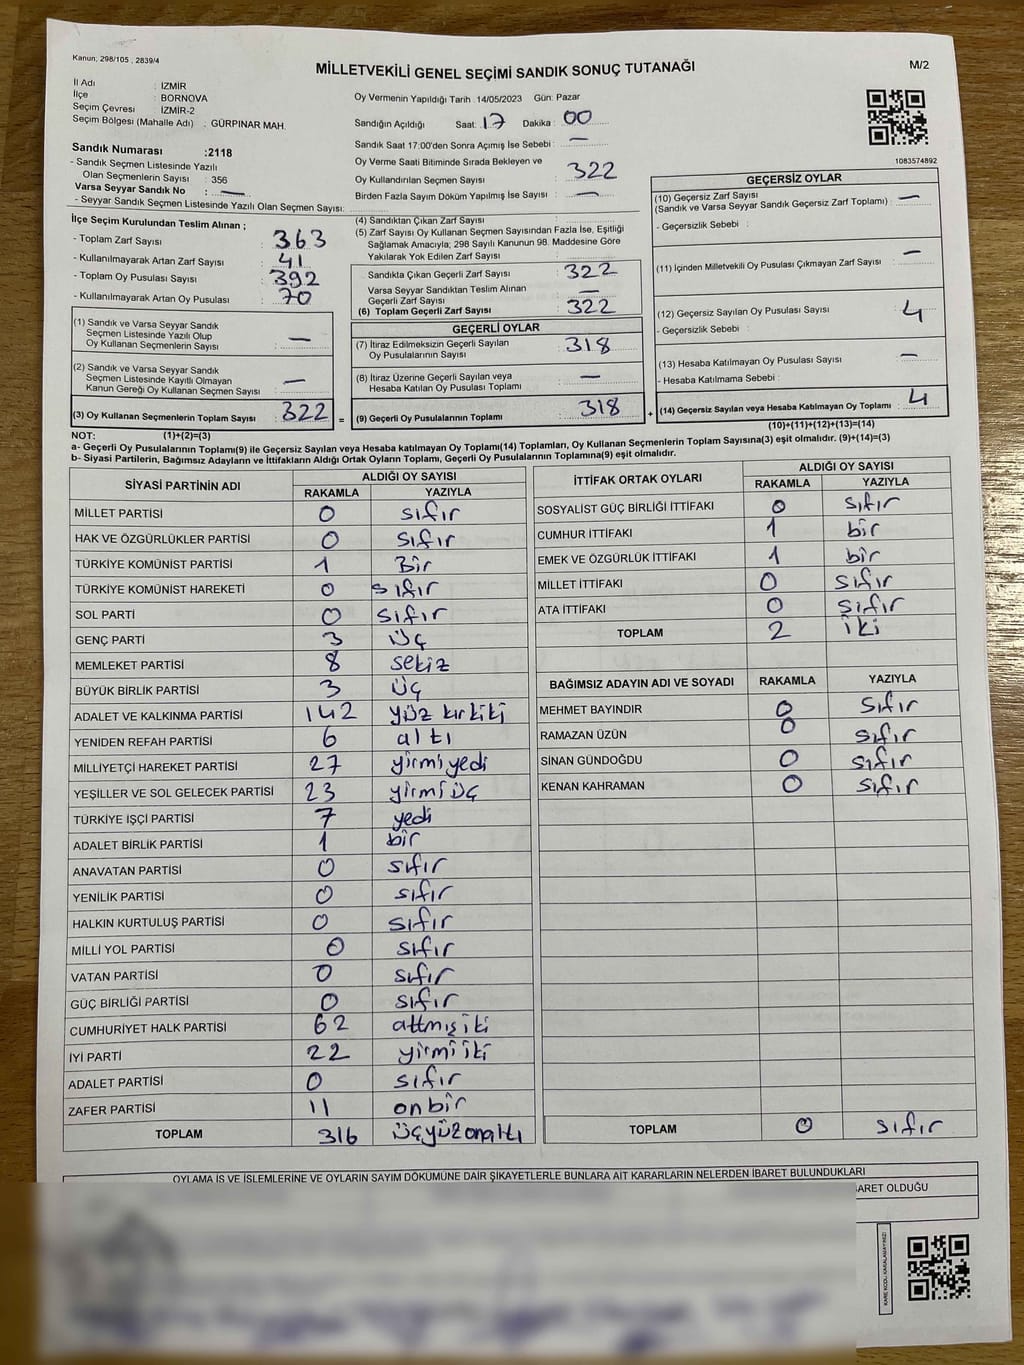 Kanun; 298/105 , 2839/4
MİLLETVEKİLİ GENEL SEÇİMİ SANDIK SONUÇ TUTANAĞI
M/2
İl Adı : İZMİR
İlçe : BORNOVA
Seçim Çevresi : İZMİR-2
Seçim Bölgesi (Mahalle Adı) : GÜRPINAR MAH.
Sandık Numarası :2118
- Sandık Seçmen Listesinde Yazılı
Olan Seçmenlerin Sayısı : 356
Varsa Seyyar Sandık No : —
- Seyyar Sandık Seçmen Listesinde Yazılı Olan Seçmen Sayısı:
İlçe Seçim Kurulundan Teslim Alınan ;
- Toplam Zarf Sayısı : 363
- Kullanılmayarak Artan Zarf Sayısı : 41
- Toplam Oy Pusulası Sayısı : 392
- Kullanılmayarak Artan Oy Pusulası : 70
(1) Sandık ve Varsa Seyyar Sandık
Seçmen Listesinde Yazılı Olup
Oy Kullanan Seçmenlerin Sayısı : —
(2) Sandık ve Varsa Seyyar Sandık
Seçmen Listesinde Kayıtlı Olmayan
Kanun Gereği Oy Kullanan Seçmen Sayısı : —
(3) Oy Kullanan Seçmenlerin Toplam Sayısı : 322 =
Oy Vermenin Yapıldığı Tarih :14/05/2023 Gün: Pazar
Sandığın Açıldığı Saat: 17 Dakika : 00
Sandık Saat 17:00'den Sonra Açımış İse Sebebi : —
Oy Verme Saati Bitiminde Sırada Bekleyen ve
Oy Kullandırılan Seçmen Sayısı : 322
Birden Fazla Sayım Döküm Yapılmış İse Sayısı : —
(4) Sandıktan Çıkan Zarf Sayısı :
(5) Zarf Sayısı Oy Kullanan Seçmen Sayısından Fazla İse, Eşitliği
Sağlamak Amacıyla; 298 Sayılı Kanunun 98. Maddesine Göre
Yakılarak Yok Edilen Zarf Sayısı :
Sandıkta Çıkan Geçerli Zarf Sayısı : 322
Varsa Seyyar Sandıktan Teslim Alınan
Geçerli Zarf Sayısı : —
(6) Toplam Geçerli Zarf Sayısı : 322
GEÇERLİ OYLAR
(7) İtiraz Edilmeksizin Geçerli Sayılan
Oy Pusulalarının Sayısı : 318
(8) İtiraz Üzerine Geçerli Sayılan veya
Hesaba Katılan Oy Pusulası Toplamı : —
(9) Geçerli Oy Pusulalarının Toplamı : 318 +
1083574892
GEÇERSİZ OYLAR
(10) Geçersiz Zarf Sayısı
(Sandık ve Varsa Seyyar Sandık Geçersiz Zarf Toplamı) : —
- Geçersizlik Sebebi :
(11) İçinden Milletvekili Oy Pusulası Çıkmayan Zarf Sayısı : —
(12) Geçersiz Sayılan Oy Pusulası Sayısı : 4
- Geçersizlik Sebebi :
(13) Hesaba Katılmayan Oy Pusulası Sayısı : —
- Hesaba Katılmama Sebebi :
(14) Geçersiz Sayılan veya Hesaba Katılmayan Oy Toplamı : 4
(10)+(11)+(12)+(13)=(14)
NOT: (1)+(2)=(3)
a- Geçerli Oy Pusulalarının Toplamı(9) ile Geçersiz Sayılan veya Hesaba katılmayan Oy Toplamı(14) Toplamları, Oy Kullanan Seçmenlerin Toplam Sayısına(3) eşit olmalıdır. (9)+(14)=(3)
b- Siyasi Partilerin, Bağımsız Adayların ve İttifakların Aldığı Ortak Oyların Toplamı, Geçerli Oy Pusulalarının Toplamına(9) eşit olmalıdır.
SİYASİ PARTİNİN ADI ALDIĞI OY SAYISI
RAKAMLA YAZIYLA
MİLLET PARTİSİ 0 sıfır
HAK VE ÖZGÜRLÜKLER PARTİSİ 0 sıfır
TÜRKİYE KOMÜNİST PARTİSİ 1 Bir
TÜRKİYE KOMÜNİST HAREKETİ 0 sıfır
SOL PARTİ 0 sıfır
GENÇ PARTİ 3 üç
MEMLEKET PARTİSİ 8 sekiz
BÜYÜK BİRLİK PARTİSİ 3 üç
ADALET VE KALKINMA PARTİSİ 142 yüz kırkiki
YENİDEN REFAH PARTİSİ 6 altı
MİLLİYETÇİ HAREKET PARTİSİ 27 yirmi yedi
YEŞİLLER VE SOL GELECEK PARTİSİ 23 yirmi üç
TÜRKİYE İŞÇİ PARTİSİ 7 yedi
ADALET BİRLİK PARTİSİ 1 bir
ANAVATAN PARTİSİ 0 sıfır
YENİLİK PARTİSİ 0 sıfır
HALKIN KURTULUŞ PARTİSİ 0 sıfır
MİLLİ YOL PARTİSİ 0 sıfır
VATAN PARTİSİ 0 sıfır
GÜÇ BİRLİĞİ PARTİSİ 0 sıfır
CUMHURİYET HALK PARTİSİ 62 altmış iki
İYİ PARTİ 22 yirmi iki
ADALET PARTİSİ 0 sıfır
ZAFER PARTİSİ 11 onbir
TOPLAM 316 üçyüzonaltı
İTTİFAK ORTAK OYLARI ALDIĞI OY SAYISI
RAKAMLA YAZIYLA
SOSYALİST GÜÇ BİRLİĞİ İTTİFAKI 0 sıfır
CUMHUR İTTİFAKI 1 bir
EMEK VE ÖZGÜRLÜK İTTİFAKI 1 bir
MİLLET İTTİFAKI 0 sıfır
ATA İTTİFAKI 0 sıfır
TOPLAM 2 iki
BAĞIMSIZ ADAYIN ADI VE SOYADI RAKAMLA YAZIYLA
MEHMET BAYINDIR 0 sıfır
RAMAZAN ÜZÜN 0 sıfır
SİNAN GÜNDOĞDU 0 sıfır
KENAN KAHRAMAN 0 sıfır
TOPLAM 0 sıfır
OYLAMA İŞ VE İŞLEMLERİNE VE OYLARIN SAYIM DÖKÜMÜNE DAİR ŞİKAYETLERLE BUNLARA AİT KARARLARIN NELERDEN İBARET BULUNDUKLARI
BARET OLDUĞU
KARE KODU KARALAMAYINIZ!